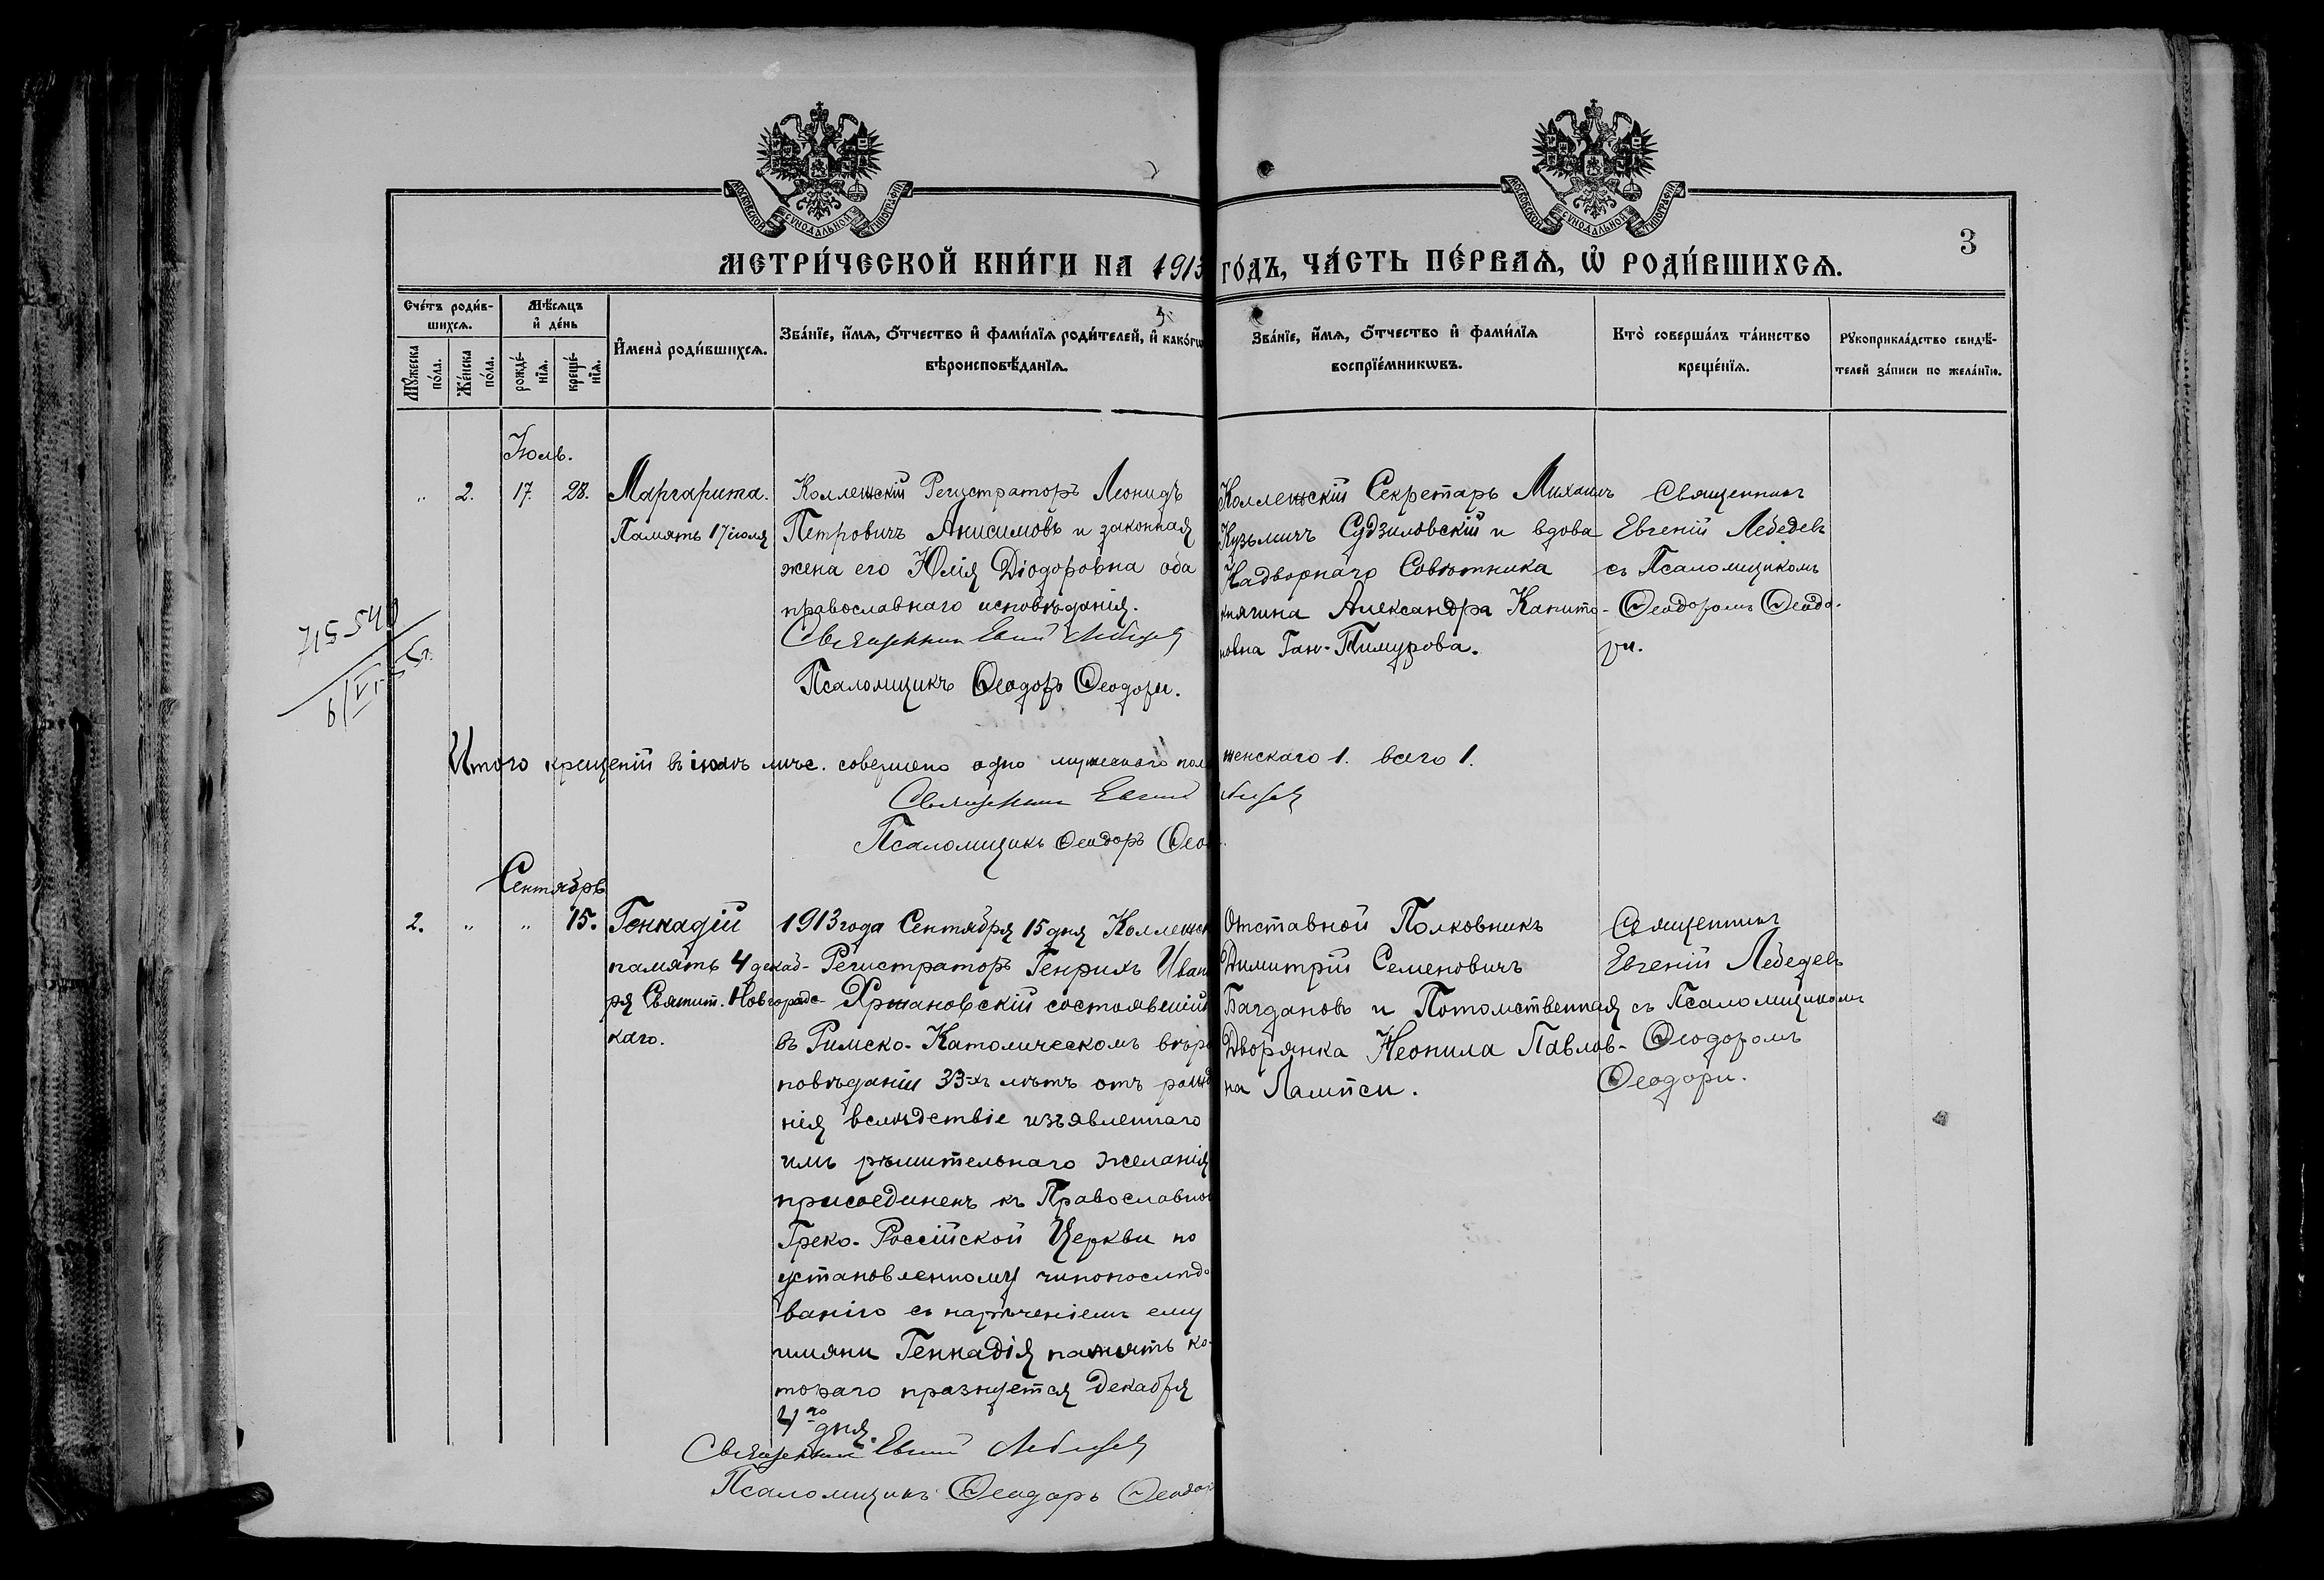 МОСКОВСКОЙ СѴНОДАЛЬНОЙ ТИПОГРАФІИ
МОСКОВСКОЙ СѴНОДАЛЬНОЙ ТИПОГРАФІИ
3
МЕТРИ́ЧЕСКОЙ КНИ́ГИ НА 1913 ГО́ДЪ, ЧА́СТЬ ПЕ́РВАѦ, Ѡ҆ РОДИ́ВШИХСѦ.
Сче́тъ роди́в-
шихсѧ.
Мꙋ́жеска по́ла.
Же́нска по́ла.
Мѣ́сѧцъ
и҆ де́нь
рожде́-
нїѧ.
креще́-
нїѧ.
И҆мена̀ роди́вшихсѧ.
Зва́нїе, и҆́мѧ, ѻ҆́тчество и҆ фами́лїѧ роди́телей, и҆ како́гѡ
вѣроисповѣ́данїѧ.
Зва́нїе, и҆́мѧ, ѻ҆́тчество и҆ фами́лїѧ
воспрїе́мникѡвъ.
Кто̀ соверша́лъ та́инство
креще́нїѧ.
Рꙋкоприкла́дство свидѣ́-
телей за́писи по жела́нїю.
Іюль.
„ 2. 17. 28.
Маргарита.
Память 17 іюля
Коллежскій Регистраторъ Леонидъ
Петровичъ Анисимовъ и законная
жена его Юлія Діодоровна оба
православнаго исповѣданія.
Священник Евгеній Лебедев
Псаломщикъ Ѳеодоръ Ѳеодори.
Коллежскій Секретарь Михаилъ
Кузьмичъ Судзиловскій и вдова
Надворнаго Совѣтника
княгина Александра Капито-
новна Ган-Тимурова.
Священникъ
Евгеній Лебедевъ
съ Псаломщикомъ
Ѳеодоромъ Ѳеодо-
ри.
Итого крещеній въ іюлѣ мѣс. совершено одно мужескаго пола женскаго 1. всего 1.
Священник Евгеній Лебедев
Псаломщикъ Ѳеодоръ Ѳеод
Сентябрь
2. „ „ 15.
Геннадій
память 4 декаб-
ря Святит. Новгородс-
каго.
1913 года Сентября 15 дня Коллежск
Регистраторъ Генрихъ Иван
Хржановскій состоявшій
въ Римско-Католическомъ вѣро
повѣданіи 33-хъ лѣтъ отъ рожд
нія вслѣдствіе изъявленнаго
имъ рѣшительнаго желанія
присоединенъ къ Православно
Греко-Россійской Церкви по
установленному чинопослѣдо
ванію съ нарѣченіемъ ему
имяни Геннадія память ко-
тораго празнуется Декабря
4го дня.
Священник Евгеній Лебедев
Псаломщикъ Ѳеодоръ Ѳеодор
Отставной Полковникъ
Димитрій Семеновичъ
Багдановъ и Потомственная
Дворянка Неонила Павлов-
на Лампси.
Священникъ
Евгеній Лебедевъ
съ Псаломщикомъ
Ѳеодоромъ
Ѳеодори.